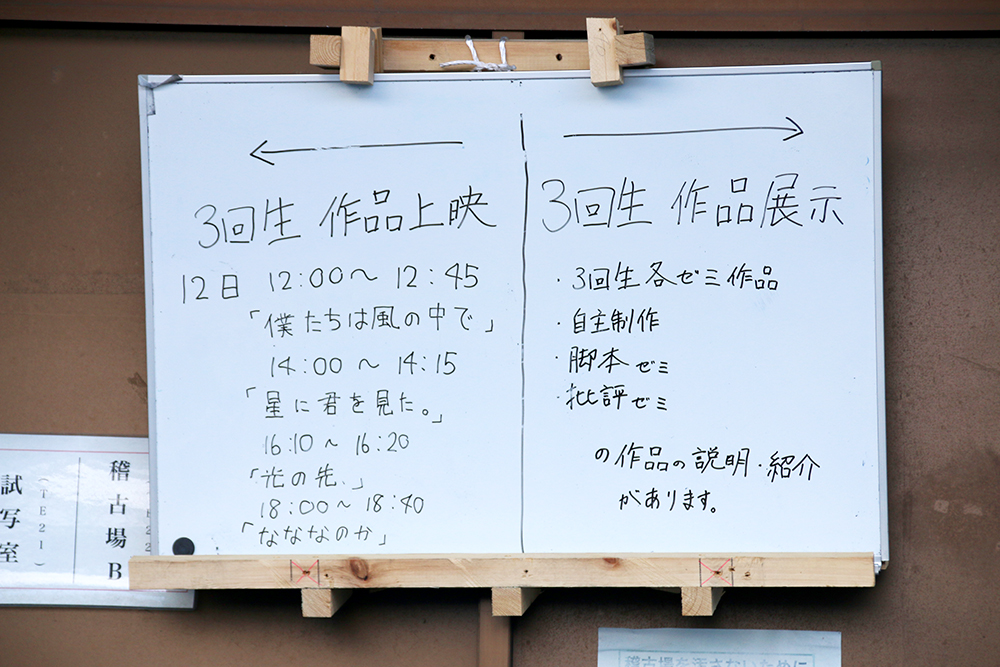 3回生 作品上映
12日 12:00〜12:45
「僕たちは風の中で」
14:00〜14:15
「星に君を見た。」
16:10〜16:20
「光の先、」
18:00〜18:40
「なななのか」
3回生 作品展示
・3回生各ゼミ作品
・自主制作
・脚本ゼミ
・批評ゼミ
の作品の説明・紹介
があります。
稽古場B
試写室
(TE21)
稽古場を汚さないために